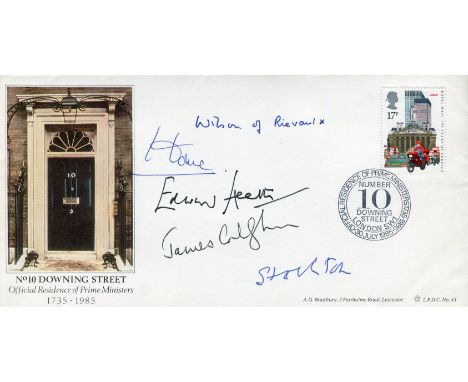 Wilson of Rievaulx
Home
17P
Edward Heath
James Callaghan
Stockton
OFFICIAL RESIDENCE OF PRIME MINISTERS 1735-1985
NUMBER
10
DOWNING
STREET
LONDON SW1
30 JULY 1985
10
No 10 DOWNING STREET
Official Residence of Prime Ministers
1735 - 1985
A.G. Bradbury, 3 Fairholme Road, Leicester.
L.F.D.C. No. 43